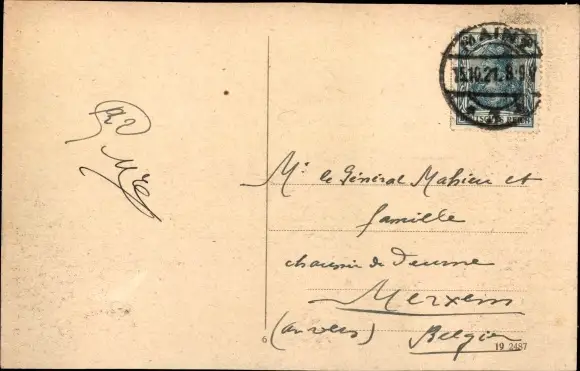 MAINZ
15.10.21. 8-9 V
DEUTSCHES REICH
Mr le Général Mahieu et
famille
chaussée de Deurne
Merxem
(Anvers) Belgie
6
19 2487